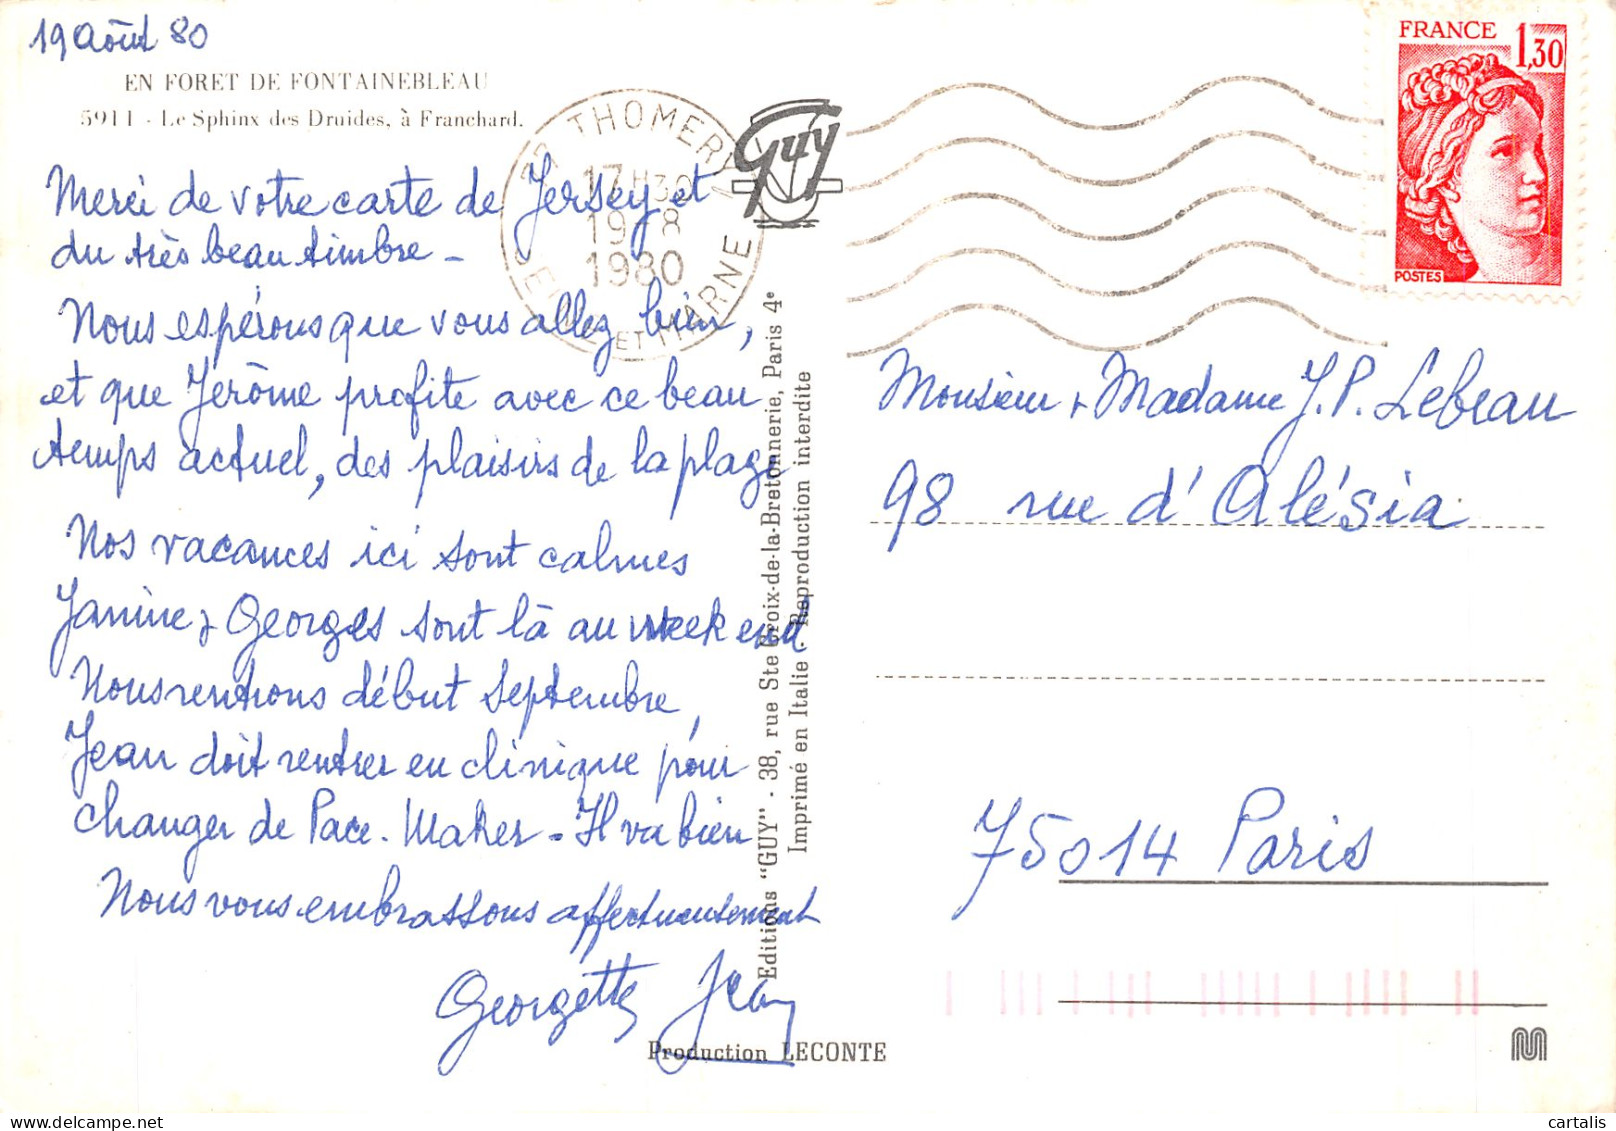 19 Août 80
EN FORET DE FONTAINEBLEAU
5911 - Le Sphinx des Druides, à Franchard.
Merci de votre carte de Jersey et
du très beau timbre -
Nous espérons que vous allez bien,
et que Jérôme profite avec ce beau
temps actuel, des plaisirs de la plage
Nos vacances ici sont calmes
Janine & Georges sont là au week end
Nous rentrons début Septembre,
Jean doit rentrer en clinique pour
changer de Pace-Maker - Il va bien
Nous vous embrassons affectueusement
Georgette Jean
THOMERY
17H30
19-8
1980
SEINE ET MARNE
Guy
Editions "GUY" - 38, rue Ste Croix-de-la-Bretonnerie, Paris 4e
Imprimé en Italie - Reproduction interdite
Production LECONTE
FRANCE 1,30
POSTES
Monsieur & Madame J.P. Lebeau
98 rue d'Alésia
75014 Paris
M
© cartalis | delcampe.net